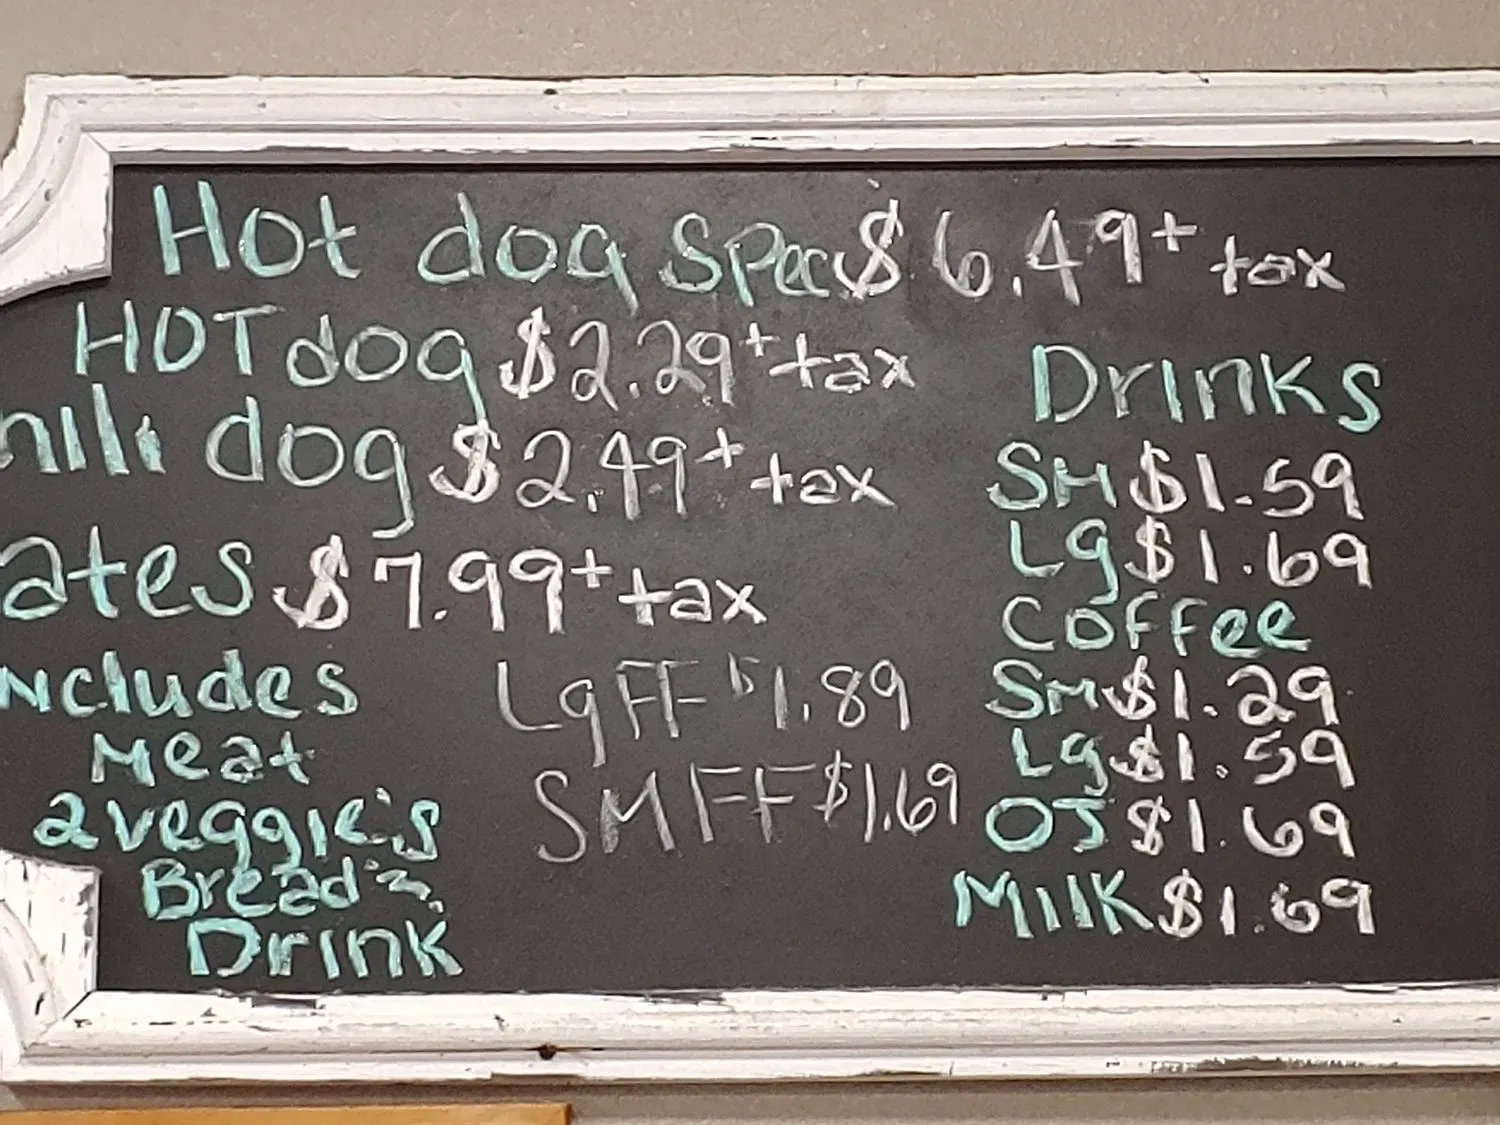 Hot dog Spec $6.49 + tax
HOT dog $2.29 + tax
hili dog $2.49 + tax
ates $7.99 + tax
ncludes
Meat
2 veggie's
Bread n
Drink
Lg FF $1.89
SM FF $1.69
Drinks
SM $1.59
Lg $1.69
Coffee
Sm $1.29
Lg $1.59
OJ $1.69
Milk $1.69